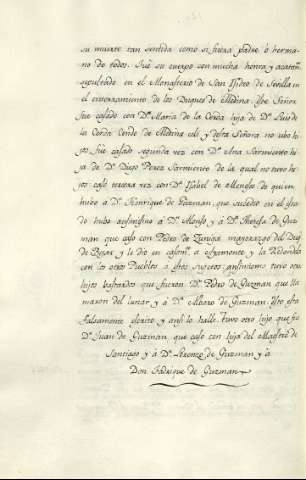 su muerte tan sentida como si fuera padre o herma-
no de todos. Fue su cuerpo con mucha honra y acatam.to
sepultado en el Monasterio de San Isidro de Sevilla en
el enterramiento de los Duques de Medina. Este Señor
fue casado con D.ª Maria de la Cerda hija de D.n Luis de
la Cerda Conde de Medina celi y desta Señora no ubo hi-
jos fue casado segunda vez con D.ª Ana Sarmiento hi-
ja de D.n Diego Perez Sarmiento de la qual no tuvo hi-
jos casó tercera vez con D.ª Isabel de Meneses de quien
hubo a D.n Henrique de Guzman, que sucedio en el Esta-
do hubo asimismo a D.n Alonso y á D.ª Theresa de Guz-
man que casó con Pedro de Zuñiga mayorazgo del Duq.
de Bejar y le dio en casam.to a Ayamonte y la Redondela
con los otros Pueblos a estos sugetos asimismo tuvo otros
hijos bastardos que fueron D.n Pedro de Guzman que lla-
maron del lunar y á D.n Alonso de Guzman. Esto esta
falsamente escrito y ansi lo halle. tuvo otro hijo que fue
D.n Juan de Guzman, que casó con hija del Maestro de
Santiago y á D.n Lorenzo de Guzman y á
Don Fadrique de Guzman